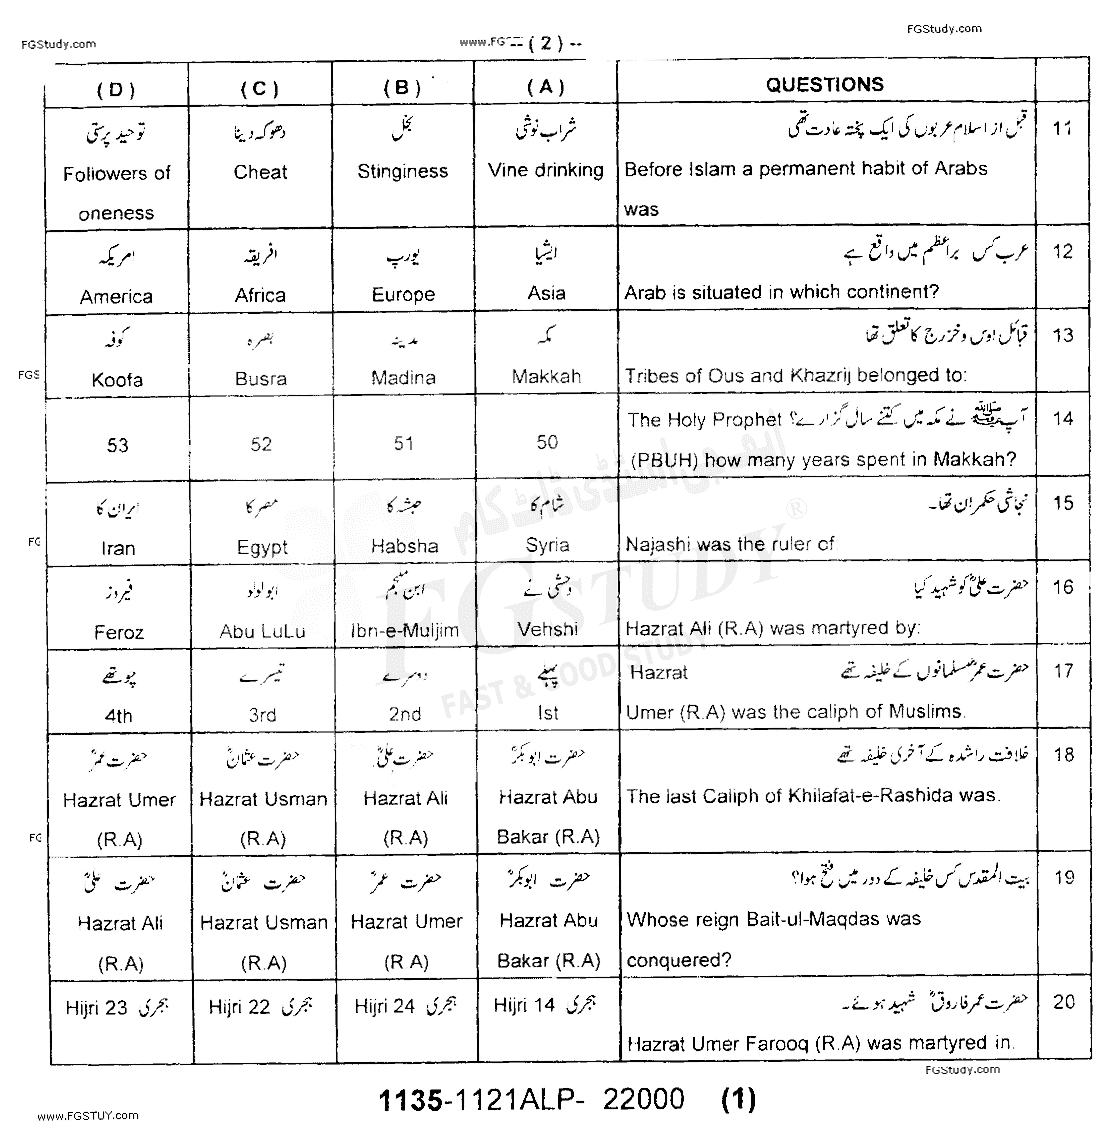 FGStudy.com
www.FG -- ( 2 ) --
FGStudy.com
( D ) ( C ) ( B ) ( A ) QUESTIONS
توحید پرستی دھوکہ دینا بخل شراب نوشی قبل از اسلام عربوں کی ایک پختہ عادت تھی 11
Followers of Cheat Stinginess Vine drinking Before Islam a permanent habit of Arabs
oneness was
امریکہ افریقہ یورپ ایشیا عرب کس براعظم میں واقع ہے 12
America Africa Europe Asia Arab is situated in which continent?
کوفہ بصرہ مدینہ مکہ قبائل اوس و خزرج کا تعلق تھا 13
FGS
Koofa Busra Madina Makkah Tribes of Ous and Khazrij belonged to:
The Holy Prophet آپ ﷺ نے مکہ میں کتنے سال گزارے؟ 14
53 52 51 50 (PBUH) how many years spent in Makkah?
ایران کا مصر کا حبشہ کا شام کا نجاشی حکمران تھا۔ 15
FG
Iran Egypt Habsha Syria Najashi was the ruler of
فیروز ابولولو ابن ملجم وحشی نے حضرت علیؓ کو شہید کیا 16
Feroz Abu LuLu Ibn-e-Muljim Vehshi Hazrat Ali (R.A) was martyred by:
چوتھے تیسرے دوسرے پہلے Hazrat حضرت عمرؓ مسلمانوں کے خلیفہ تھے 17
4th 3rd 2nd Ist Umer (R.A) was the caliph of Muslims.
حضرت عمرؓ حضرت عثمانؓ حضرت علیؓ حضرت ابوبکرؓ خلافت راشدہ کے آخری خلیفہ تھے 18
Hazrat Umer Hazrat Usman Hazrat Ali Hazrat Abu The last Caliph of Khilafat-e-Rashida was.
FG
(R.A) (R.A) (R.A) Bakar (R.A)
حضرت علیؓ حضرت عثمانؓ حضرت عمرؓ حضرت ابوبکرؓ بیت المقدس کس خلیفہ کے دور میں فتح ہوا؟ 19
Hazrat Ali Hazrat Usman Hazrat Umer Hazrat Abu Whose reign Bait-ul-Maqdas was
(R.A) (R.A) (R A) Bakar (R.A) conquered?
Hijri 23 ہجری Hijri 22 ہجری Hijri 24 ہجری Hijri 14 ہجری حضرت عمر فاروقؓ شہید ہوئے۔ 20
Hazrat Umer Farooq (R.A) was martyred in.
FGStudy.com
1135-1121ALP- 22000 (1)
www.FGSTUY.com
ایف جی سٹڈی ڈاٹ کام
FGSTUDY®
FAST & GOOD STUDY